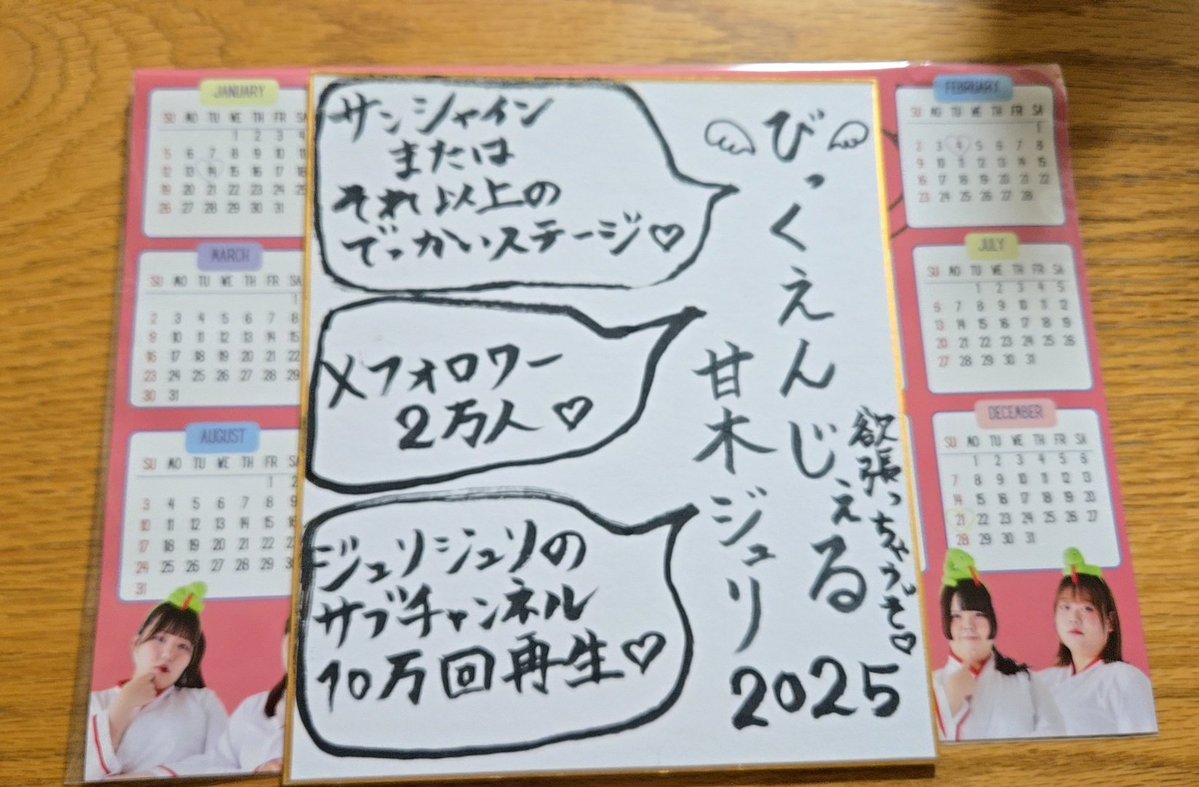 びっくえんじぇる
欲張っちゃうぞ♡
甘木ジュリ
2025
サンシャイン
または
それ以上の
でっかいステージ♡
Xフォロワー
2万人♡
ジュリジュリの
サブチャンネル
10万回再生♡
JANUARY
SU MO TU WE TH FR SA
1 2 3 4
5 6 7 8 9 10 11
12 13 14 15 16 17 18
19 20 21 22 23 24 25
26 27 28 29 30 31
MARCH
SU MO TU WE TH FR SA
1
2 3 4 5 6 7 8
9 10 11 12 13 14 15
16 17 18 19 20 21 22
23 24 25 26 27 28 29
30 31
AUGUST
SU MO TU WE TH FR SA
1 2
3 4 5 6 7 8 9
10 11 12 13 14 15 16
17 18 19 20 21 22 23
24 25 26 27 28 29 30
31
FEBRUARY
SU MO TU WE TH FR SA
1
2 3 4 5 6 7 8
9 10 11 12 13 14 15
16 17 18 19 20 21 22
23 24 25 26 27 28
JULY
SU MO TU WE TH FR SA
1 2 3 4 5
6 7 8 9 10 11 12
13 14 15 16 17 18 19
20 21 22 23 24 25 26
27 28 29 30 31
DECEMBER
SU MO TU WE TH FR SA
1 2 3 4 5 6
7 8 9 10 11 12 13
14 15 16 17 18 19 20
21 22 23 24 25 26 27
28 29 30 31